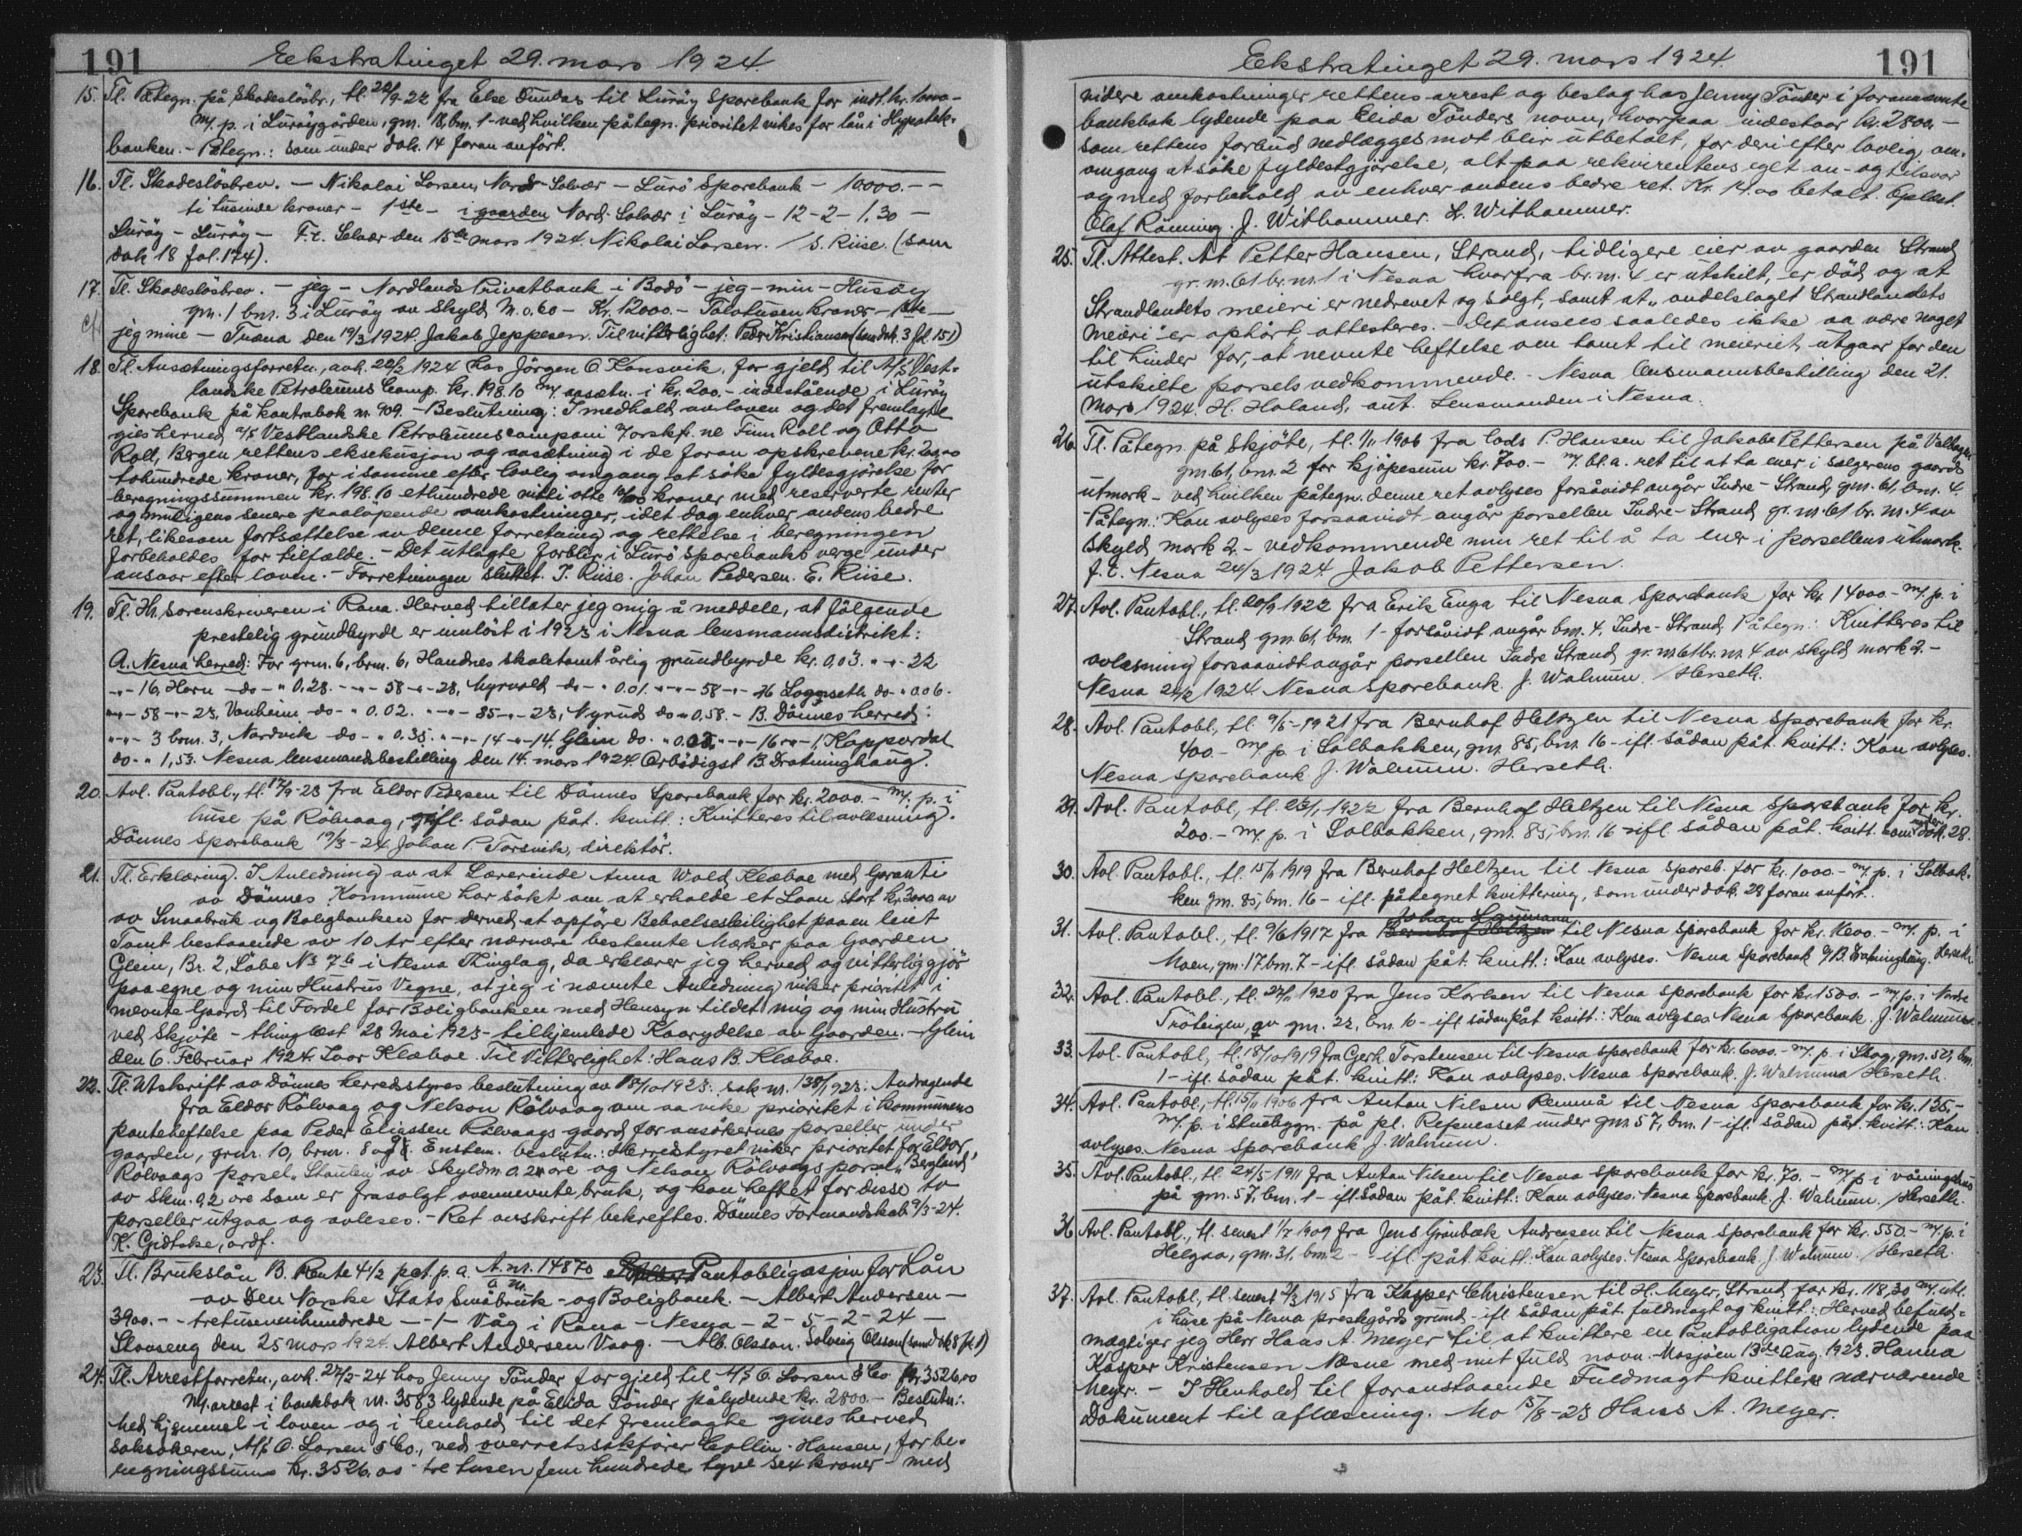 191
Eekstratinget 29. mars 1924.
15. Tl. Påtegn. på Skadeslösbr., tl. 22/9-22 fra Else Dundas til Luröy Sparebank for indt. kr.
m/ p. i Luröygården, gm. 18, bm. 1 - ved hvilken påtegn. prioritet vikes for lån i Hypotek-
banken. - Påtegn.: som under dok. 14 foran anfört.
16. Tl. Skadeslösbrev. - Nikolai Larsen, Nord-Solvær - Lurö Sparebank - 10000. - -
ti tusinde kroner - 1ste - i gaarden Nord-Solvær i Luröy - 12 - 2 - 1,30 -
Luröy - Luröy - F.t. Selvær den 15de mars 1924. Nikolai Larsen. / S. Riise. (som
dok 18 fol. 174).
17. Tl. Skadeslösbrev. - jeg - Nordlands Privatbank i Bodö - jeg - min - Husöy
gn. 1 bnr. 3 i Luröy av Skyld M. 0,60 - Kr. 12000. - Tolvtusen kroner - 1ste -
jeg mine - Træna den 19/3 1924. Jakob Jeppesen. Til vitterlighet: Peder Kristiansen (som dok. 3 fol. 151)
18. Tl. Utsætningsforretn., avh. 22/2 1924 hos Jörgen O. Konsvik, for gjeld til A/S Vest-
landske Petroleums Comp. kr. 198.10 m/ utsætn. i kr. 200. - indestående i Luröy
Sparebank på kontrabok nr. 909. - Beslutning: I medhold av loven og det fremlagte
gies herved a/s Vestlandske Petroleumscompani v/ orskf. ne Finn Roll og Otto
Roll, Bergen rettens eksekusjon og utsætning i de foran opskrevene kr. 200,00
tohundrede kroner, for i samme efter lovlig omgang at söke fyldesgjörelse for
beregningssummen kr. 198.10 ethundrede nitti otte 10/100 kroner med reserverte renter
og muligens senere paalöpende omkostninger, idet dog enhver andens bedre
ret, likesom fortsættelse av denne forretning og rettelse i beregningen
forbeholdes for tilfælde. - Det utlagte forblir i Lurö Sparebanks verge under
ansvar efter loven. - Forretningen sluttet. S. Riise. Johan Pedersen. E. Riise.
19. Tl. Hr. Sorenskriveren i Rana. Herved tillater jeg mig å meddele, at fölgende
prestelig grundbyrde er innlöst i 1923 i Nesna lensmannsdistrikt:
A. Nesna herred: For grm. 6, brm. 6, Handnes skoletomt årlig grundbyrde kr. 0,03. " - " - 22
-"- 16, Horn -do- " 0,28. - "- 58 -"- 28, Myrvold do - " 0.01. "-"- 58 -"- 46 Loggseth do " 0.06.
"-"- 58 -"- 23, Vonheim - do - " 0.02. "-"- 35 -"- 23, Nyrud do " 0,58. - B. Dönnes herred:
"-"- 3 brm. 3, Nordvik do - " 0.35. "-"- 14 -"- 14. Glein do. " 0.03. "-"- 16 "-" 1, Kopperdal
do - " 1,53. Nesna lensmandsbestilling den 14. mars 1924. Ærbödigst B. Dratninghaug.
20. Avl. Pantobl., tl. 17/9-23 fra Eldor Pedersen til Dönnes Sparebank for kr. 2000. - m/ p. i
huse på Rölvaag, ifl. sådan påt. kvitt.: Kvitteres til avlæsning.
Dönnes sparebank 19/3-24 Johan P. Forsvik, direktör.
21. Tl. Erklæring. I Anledning av at Lærerinde Anna Wold Klæboe med Garanti
av Dönnes Kommune har sökt om at erholde et Laan stort kr. 3000 av
av Smaabruk og Boligbanken for derved at opföre Beboelsesleilighet paa en leiet
Tomt bestaaende av 10 Ar efter nærmere bestemte Mærker paa Gaarden
Glein, Br. 2, Löbe No 76 i Nesna Thinglag, da erklærer jeg herved og vitterliggjör
paa egne og min Hustrus Vegne, at jeg i nævnte Anledning viker prioritet i
nævnte Gaard til Fordel for Boligbanken med Hensyn til det mig og min Hustru
ved Skjöte - thinglæst 28 Mai 1923 - tilhjemlede Kaarydelse av Gaarden. - Glein
den 6. Februar 1924. Ivar Klæboe. Til Vitterlighet: Hans B. Klæboe.
22. Tl. Utskrift av Dönnes herredstyres beslutning av 18/10 1923: sak nr. 138/1923: Andragende
fra Eldor Rölvaag og Nelson Rölvaag om aa vike prioritet i kommunens
panteheftelse paa Peder Eliassen Rölvaags gaard for ansökernes parseller under
gaarden, grnr. 10, brnr. 8 og 9. Enstem. beslutn.: Herredstyret viker prioritet for Eldor
Rölvaags parsel "Staulen" av skyldm. 0.2 øre og Nelson Rölvaags parsel "Bergland"
av Skm. 0,2 øre som er frasolgt ovennevnte bruk, og kan heftet for disse to
parseller utgaa og avleses. - Ret avskrift bekreftes. Dönnes Formandskab 9/3-24.
K. Gjetske, ordf.
23. Tl. Brukslån B. Rente 4 1/2 pct. p. a. A. nr. 14870 Pantobligasjon for Lån
a nr.
av Den Norske Stats Småbruk - og Boligbank. - Albert Andersen -
3900. - - tretusennihundrede - - 1 - Våg i Rana - Nesna - 2 - 5 - 2 - 24 -
Slaaseng den 25 mars 1924. Albert Andersen Vaag. - Alb. Olsson. Solveig Olsson (som dok 8 fol. 1)
24. Tl. Arrestforretn., avh. 27/3-24 hos Jenny Tönder for gjeld til A/S O. Larsen & Co. kr. 3526,00
m/ arrest i bankbok nr. 3583 lydende på Elida Tönder pålydende kr. 2800. - Beslutn.:
Med hjemmel i loven og i henhold til det fremlagte gives herved
saksökeren, A/S O. Larsen & Co., ved overretssakförer Collin-Hansen, for be-
regningssum kr. 3526.00 tre tusen fem hundrede tyve sex kroner - med
Ekstratinget 29. mars 1924.
191
videre omkostninger rettens arrest og beslag hos Jenny Tönder i forannævnte
bankbok lydende paa Elida Tönders navn, hvorpaa indestaar kr. 2800. -
som rettens forbud nedlægges mot blir utbetalt, for deri efter lovlig om-
omgang at söke fyldestgjörelse, alt paa rekvirentens eget an- og tilsvar
og med forbehold av enhver andens bedre ret. Kr. 14,00 betalt. Oplæst.
Olaf Rönning. J. Withammer. L. Withammer.
25. Tl. Attest. At Petter Hansen, Strand, tidligere eier av gaarden Strand
gr. nr. 61 br. nr. 1 i Nesna hvorfra br. nr. 4 er utskilt, er död, og at
Strandlandets meieri er nedrevet og solgt, samt at "andelslaget Strandlandets
meieri" er ophört, attesteres. - Det ansees saaledes ikke aa være noget
til hinder for, at nevnte heftelse om tomt til meieriet utgaar for den
utskilte parsels vedkommende. - Nesna lensmannsbestilling den 21.
mars 1924. H. Haland, aut. Lensmanden i Nesna.
26. Tl. Påtegn. på Skjöte, tl. 1/11 1906 fra Lods P. Hansen til Jakob Pettersen på
gm. 61, bm. 2 for kjöpesum kr. 700. - m/ bl. a. ret til at ta ener i sælgerens gaards
utmark - ved hvilken påtegn. denne ret avlyses forsåvidt angår Indre-Strand, gm. 61, bm. 4.
-Påtegn.: Kan avlyses forsaavidt angår parsellen Indre-Strand gr. nr. 61 br. nr. 4 av
skyld mark 2. - vedkommende min ret til å ta ener i parsellens utmark.
f. t. Nesna 24/3 1924 Jakob Pettersen.
27. Avl. Pantobl., tl. 20/9 1922 fra Erik Enga til Nesna Sparebank for kr. 14000 - m/ p. i
Strand gm. 61, bm. 1 - forsåvidt angår bm. 4, Indre-Strand. Påtegn.: Kvitteres til
avlæsning forsaavidt angår parsellen Indre Strand gr. nr. 61 br. nr. 4 av skyld mark 2. -
Nesna 24/2 1924 Nesna Sparebank. J. Walnum. / Herseth.
28. Avl. Pantobl., tl. 9/5-1921 fra Bernhof Heltzen til Nesna Sparebank for kr.
400 - m/ p. i Solbakken, gm. 85, bm. 16 - ifl. sådan påt. kvitt.: Kan avlyses.
Nesna Sparebank J. Walnum. Herseth.
29. Avl. Pantobl., tl. 23/1 1922 fra Bernhof Heltzen til Nesna Sparebank for kr.
200. - m/ p. i Solbakken, gm. 85, bm. 16 - ifl. sådan påt. kvitt. som under dok. 28.
30. Avl. Pantobl., tl. 15/11 1919 fra Bernhof Heltzen til Nesna Spareb. for kr. 1000. - m/ p. i Solbak-
ken gm. 85, bm. 16 - ifl. påtegnet kvittering, som under dok. 28 foran anfört.
Johan Laumann
31. Avl. Pantobl., tl. 9/6 1917 fra Bernhof Heltzen til Nesna Sparebank for kr. 1600. - m/ p. i
Moen, gm. 17 bm. 7 - ifl. sådan påt. kvitt.: Kan avlyses. Nesna Sparebank B. Dratninghaug. Herseth.
32. Avl. Pantobl., tl. 27/11 1920 fra Jens Karlsen til Nesna Sparebank for kr. 1500. - m/ p. i Nordre
Tröteigen, av gm. 22, bm. 10 - ifl. sådan påt. kvitt.: Kan avlyses Nesna Sparebank. J. Walnum
33. Avl. Pantobl., tl. 18/10 1919 fra Gjerh. Torstensen til Nesna Sparebank for kr. 6000. - m/ p. i Skog, gm. 50, bm.
1 - ifl. sådan påt. kvitt.: Kan avlyses. Nesna Sparebank. J. Walnum / Herseth.
34. Avl. Pantobl., tl. 15/11 1906 fra Anton Nilsen Remmå til Nesna Sparebank for kr. 135. -
m/ p. i Stuebyggn. på pl. Refneset under gm. 57, bm. 1 - ifl. sådan påt. kvitt.: Kan
avlyses. Nesna Sparebank J. Walnum.
35. Avl. Pantobl., tl. 24/5 1911 fra Anton Nilsen til Nesna Sparebank for kr. 70. - m/ p i våningshus
på gm. 57, bm. 1 - ifl. sådan påt. kvitt.: Kan avlyses. Nesna Sparebank. J. Walnum. / Herseth.
36. Avl. Pantobl., tl. senest 1/2 1909 fra Jens Grönbæk Andreasen til Nesna Sparebank for kr. 550 - m/ p. i
Helgaa, gm. 31, bm. 2 - ifl. påt. kvitt.: Kan avlyses. Nesna Sparebank J. Walnum. / Herseth.
37. Avl. Pantobl., tl. senest 2/3 1915 fra Kasper Christensen til H. Meyer, Strand, for kr. 118,30 m/ utl.
i huse på Nesna prestgårds grund - ifl. sådan påt. fuldmagt og kvitt.: Herved befuld-
mægtiger jeg Herr Hans A. Meyer til at kvittere en Pantobligation lydende paa
Kasper Kristensen Næsne med mit fuld navn. Mosjöen 13de Aug. 1923. Hanna
Meyer. - I Henhold til foranstaaende Fuldmagt kvittere nærværende
Dokument til aflæsning. Mo 15/8-23 Hans A. Meyer.